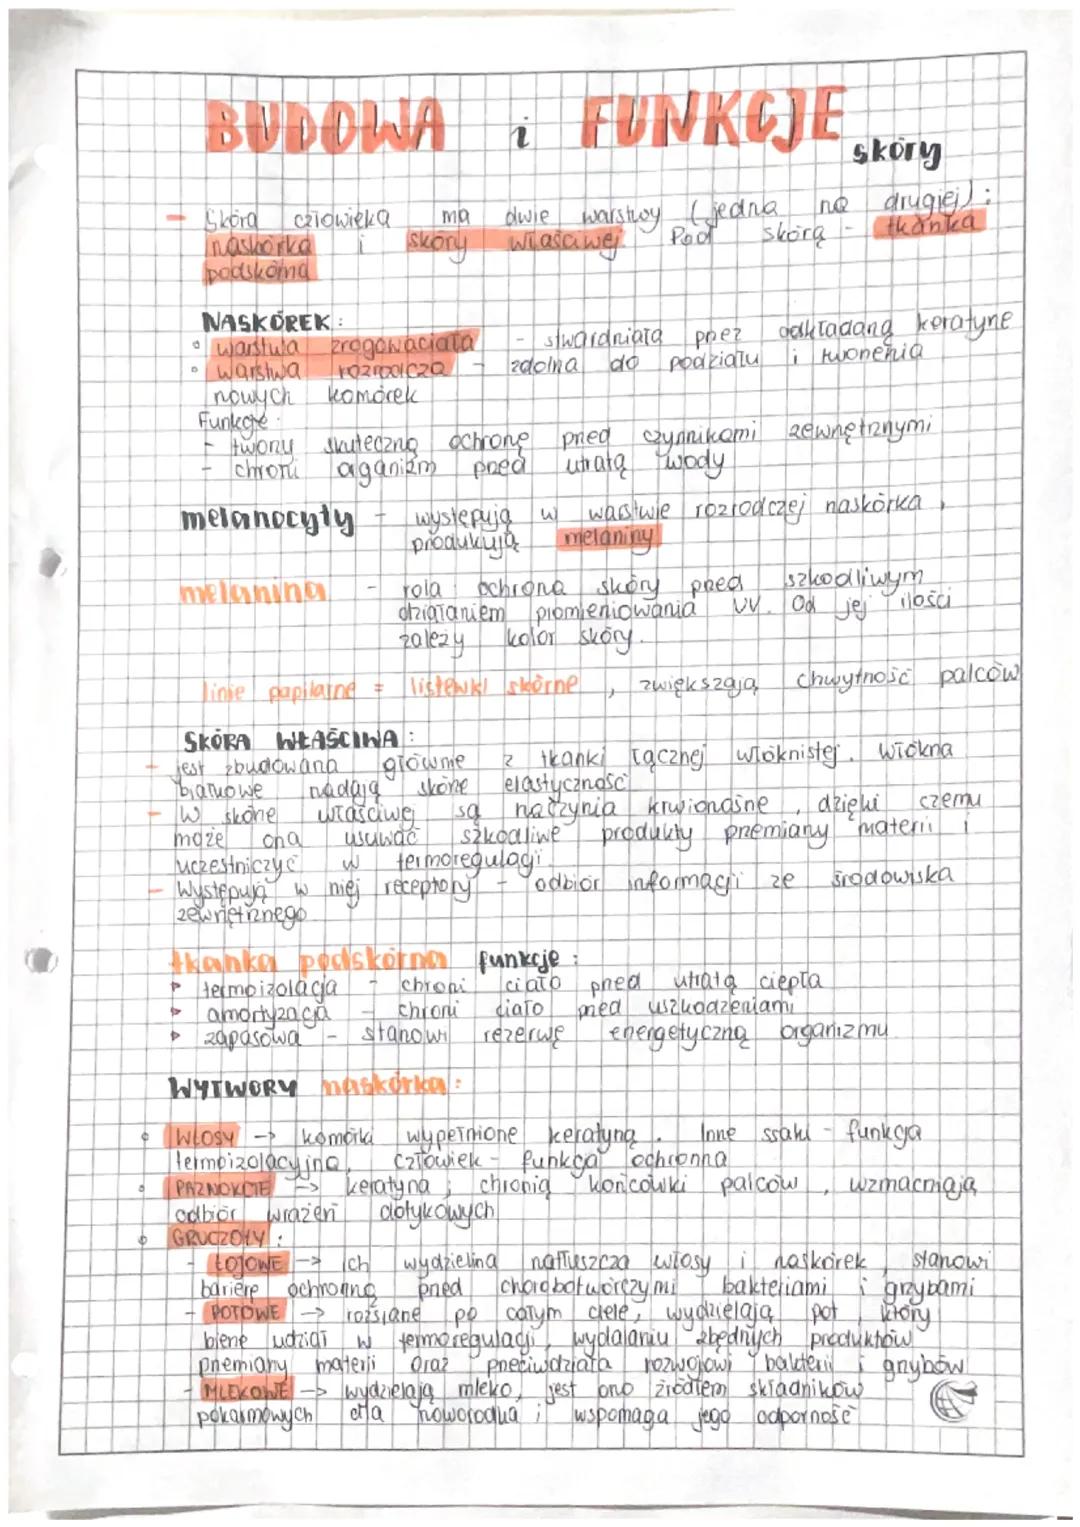 BUDOWA i FUNKCJE skóry
- Skóra człowieka ma dwie warstwy (jedna na drugiej):
naskórka i skóry właściwej. Pod skórą - tkanka
podskórna
NASKÓREK:
warstwa zrogowaciała - stwardniała przez odkładaną keratynę
warstwa rozrodcza - zdolna do podziału i tworzenia
nowych komórek
Funkcje:
- tworzy skuteczną ochronę przed czynnikami zewnętrznymi
- chroni organizm przed utratą wody
melanocyty - występują w warstwie rozrodczej naskórka,
produkują melaniny
melanina - rola: ochrona skóry przed szkodliwym
działaniem promieniowania UV. Od jej ilości
zależy kolor skóry.
linie papilarne = listewki skórne, zwiększają chwytność palców
SKÓRA WŁAŚCIWA:
- jest zbudowana głównie z tkanki łącznej włóknistej. Włókna
białkowe nadają skórze elastyczność
- W skórze właściwej są naczynia krwionośne, dzięki czemu
może ona usuwać szkodliwe produkty przemiany materii i
uczestniczyć w termoregulacji.
- Występują w niej receptory - odbiór informacji ze środowiska
zewnętrznego
tkanka podskórna funkcje:
▷ termoizolacja - chroni ciało przed utratą ciepła
▷ amortyzacja - chroni ciało przed uszkodzeniami
▷ zapasowa - stanowi rezerwę energetyczną organizmu
WYTWORY naskórka:
WŁOSY -> komórki wypełnione keratyną. Inne ssaki - funkcja
termoizolacyjna, człowiek - funkcja ochronna
PAZNOKCIE -> keratyna; chronią końcówki palców, wzmacniają
odbiór wrażeń dotykowych
GRUCZOŁY:
- ŁOJOWE -> ich wydzielina natłuszcza włosy i naskórek, stanowi
barierę ochronną przed chorobotwórczymi bakteriami i grzybami
- POTOWE -> rozsiane po całym ciele, wydzielają pot, który
bierze udział w termoregulacji, wydalaniu zbędnych produktów
przemiany materii oraz przeciwdziała rozwojowi bakterii i grzybów
- MLEKOWE -> wydzielają mleko, jest ono źródłem składników
pokarmowych dla noworodka i wspomaga jego odporność